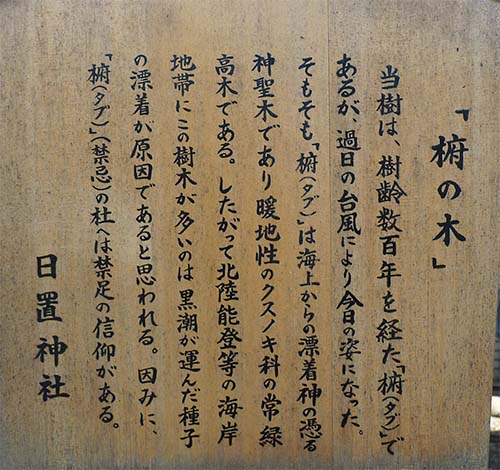 「椨の木」
当樹は、樹齢数百年を経た「椨(タブ)」で
あるが、過日の台風により今日の姿になった。
そもそも「椨(タブ)」は海上からの漂着神の憑る
神聖木であり暖地性のクスノキ科の常緑
高木である。したがって北陸能登等の海岸
地帯にこの樹木が多いのは黒潮が運んだ種子
の漂着が原因であると思われる。因みに、
「椨(タブ)」(禁忌)の社へは禁足の信仰がある。
日置神社